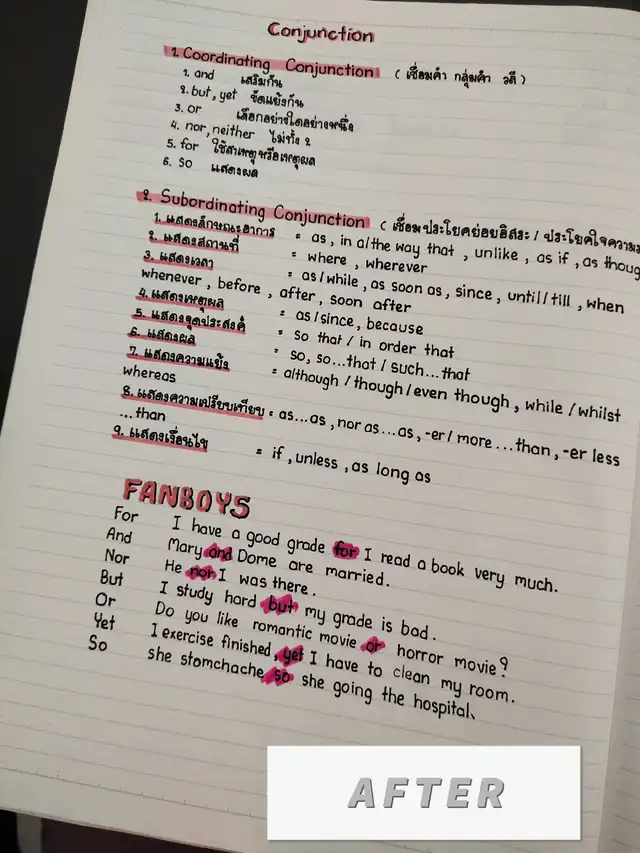 Conjunction
1. Coordinating Conjunction (เชื่อมคำ กลุ่มคำ วลี)
1. and เสริมกัน
2. but, yet ขัดแย้งกัน
3. or เลือกอย่างใดอย่างหนึ่ง
4. nor, neither ไม่ทั้ง 2
5. for ใช้สาเหตุหรือเหตุผล
6. so แสดงผล
2. Subordinating Conjunction (เชื่อมประโยคย่อยอิสระ / ประโยคใจความ
1. แสดงลักษณะอาการ = as, in a/the way that, unlike, as if, as thoug
2. แสดงสถานที่ = where, wherever
3. แสดงเวลา = as/while, as soon as, since, until/till, when
whenever, before, after, soon after
4. แสดงเหตุผล = as/since, because
5. แสดงจุดประสงค์ = so that / in order that
6. แสดงผล = so, so...that / such...that
7. แสดงความแย้ง = although / though / even though, while / whilst
whereas
8. แสดงความเปรียบเทียบ = as...as, nor as...as, -er/ more...than, -er less
...than
9. แสดงเงื่อนไข = if, unless, as long as
FANBOYS
For I have a good grade for I read a book very much.
And Mary and Dome are married.
Nor He nor I was there.
But I study hard but my grade is bad.
Or Do you like romantic movie or horror movie?
Yet I exercise finished, yet I have to clean my room.
So she stomchache so she going the hospital.
AFTER